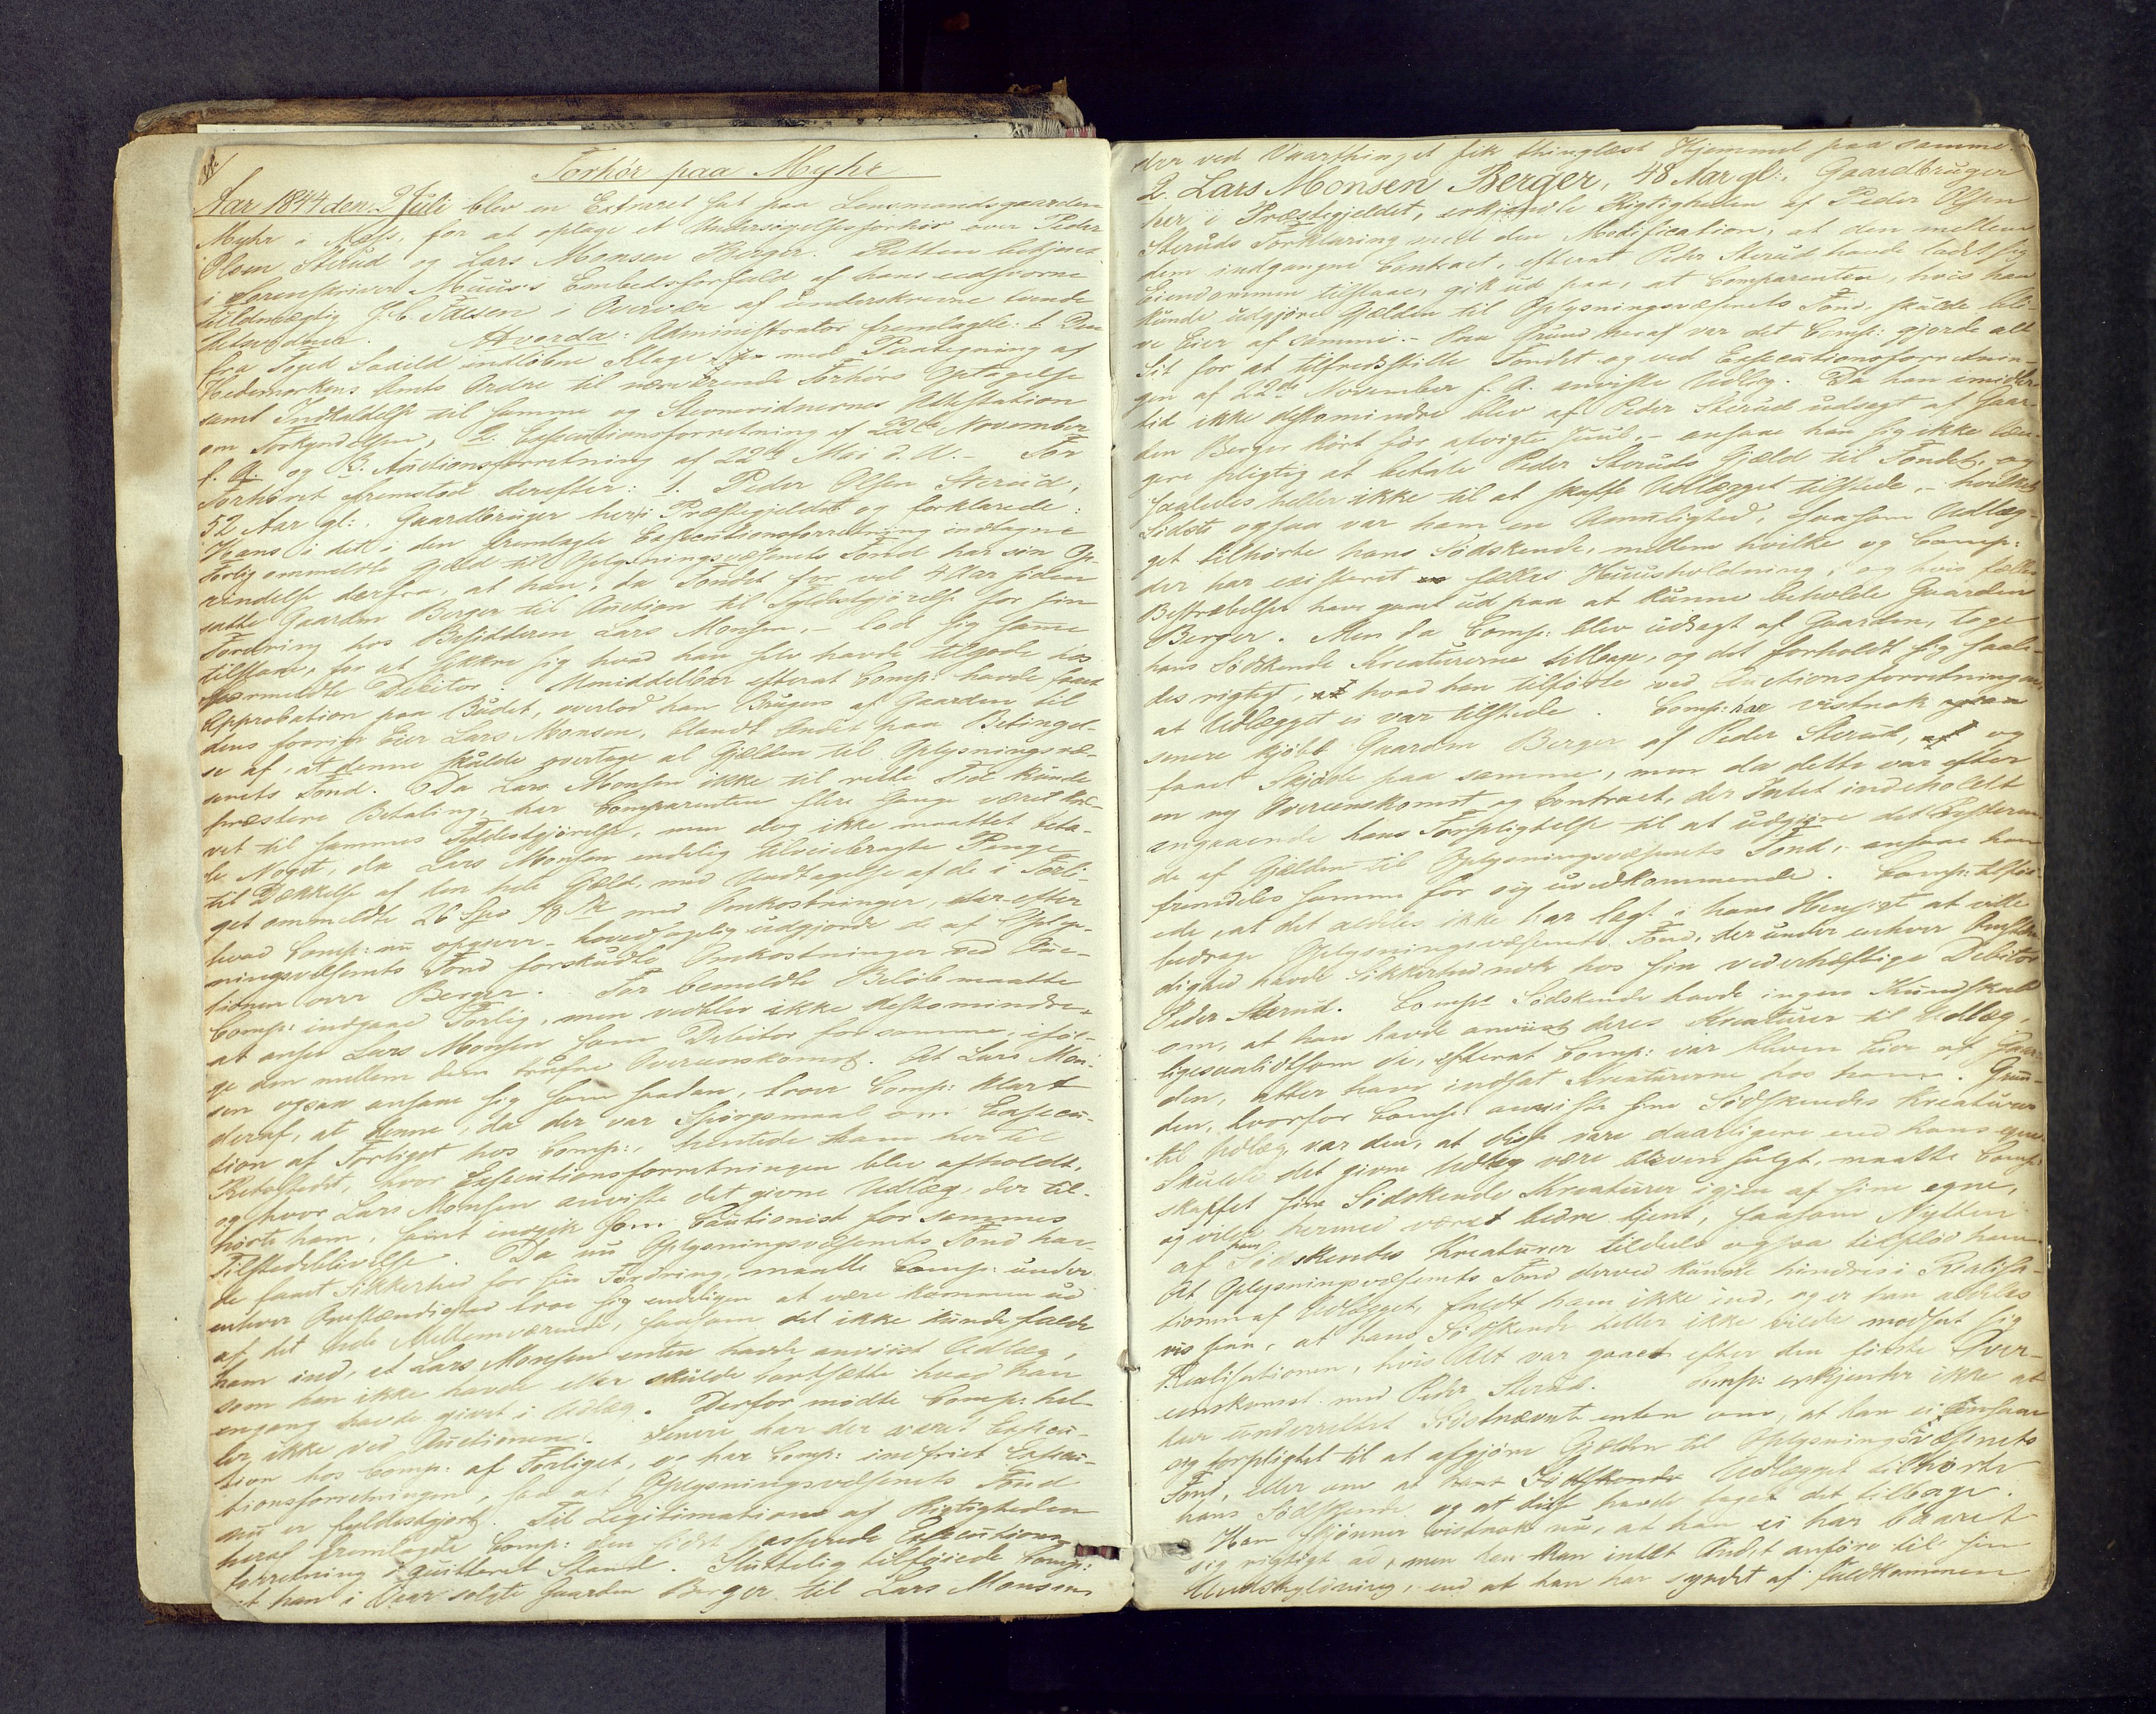 Forhör paa Myhr
Aar 1844 den 2 Juli blev en Extraret sat paa Lensmandsgaarden
Myhr i Næss, for at optage et Undersøgelsesforhör over Peder
Olsen Sterud og Lars Monsen Berger. Retten betjent
i Sorenskriver Muus's Embedsforfald af hans edsvorne
Fuldmægtig J. C. i Overvær af underskrevne tvende
Retsvidner. Hvorda: Administrator fremlagde: 1. Den
fra Foged indløbne Klage med Paategning af
Hedemarkens Amts Ordre til nærværende Forhörs Optagelse
samt Indkaldelse til samme og Stevnevidnernes Attestation
om Forkyndelsen, 2. Executionsforretning af 22de November
f. A. og 3. Auctionsforretning af 22de Mai d. A. – For
Forhöret fremstod derefter: 1. Peder Olsen Sterud,
52 Aar gl:, Gaardbruger her i Præstegjeldet og forklarede:
Hans i det i den fremlagte Executionsforretning indtagne
Forlig ommeldte Gjæld til Oplysningsvæsenets Fond har sin Op-
rindelse derfra, at han, da Fondet for vel 4 Aar siden
satte Gaarden Berger til Auction til Fyldestgjörelse for sin
Fordring hos Besidderen Lars Monsen, – lod sig samme
tilslaae, for at sikkre sig hvad han selv havde tilgode hos
bemeldte Debitor. Umiddelbar efterat Comp: havde faaet
Approbation paa Budet, overlod han Brugen af Gaarden til
dens forrige Eier Lars Monsen, blandt Andet paa Betingel-
se af, at denne skulde overtage al Gjælden til Oplysningsvæ-
senets Fond. Da Lars Monsen ikke til rette Tid kunde
præstere Betaling, har Comparenten flere Gange været kræ-
vet til sammes Fyldestgjörelse, men dog ikke maattet beta-
le Noget, da Lars Monsen endelig tilveiebragte Penge
til Dækkelse af den hele Gjæld, med Undtagelse af de i Forli-
get ommeldte 26 Spd med Omkostninger, der efter
hvad Comp: nu opgiver – hovedsagelig udgjorde de af Oplys-
ningsvæsenets Fond forskudte Omkostninger ved Auc-
tionen over Berger. For bemeldte Beløb maatte
Comp: indgaae Forlig, men vedblev ikke destomindre,
at ansee Lars Monsen som Debitor for samme, iföl-
ge den mellem dem trufne Overeenskomst. At Lars Mon-
sen ogsaa ansaae sig som saadan, troer Comp: klart
deraf, at denne, da der var Spörgsmaal om Execu-
tion af Forliget hos Comp:, hentede ham her til
Retsstedet, hvor Executionsforretningen blev afholdt,
og hvor Lars Monsen anviste det givne Udlæg, der til-
hørte ham, samt indgik som Cautionist for sammes
Tilstedeblivelse. Da nu Oplysningsvæsenets Fond hav-
de faaet Sikkerhed for sin Fordring, maatte Comp: under
enhver Omstændighed troe sig endeligen at være kommen ud
af det hele Mellemværende, saasom det ikke kunde falde
ham ind, at Lars Monsen enten havde anviist Udlæg,
som han ikke havde eller skulde bortsætte hvad han
engang havde givet i Udlæg. Derfor mødte Comp: hel-
ler ikke ved Auctionen. Senere har der været Execu-
tion hos Comp: af Forliget, og har Comp: indfriet Execu-
tionsforretningen, saa at Oplysningsvæsenets Fond
nu er fyldestgjort. Til Legitimation af Rigtigheden
heraf fremlagde Comp: den sidst passerede Executions-
forretning i quitteret Stand. Sluttelig tilföiede Comp:
at han i Vaar solgte Gaarden Berger til Lars Monsen,
der ved Vaarthinget fik thinglæst Hjemmel paa samme.
2. Lars Monsen Berger, 48 Aar gl:, Gaardbruger
her i Præstegjeldet, erkjendte Rigtigheden af Peder Olsen
Steruds Forklaring med den Modification, at den mellem
dem indgangne Contract, efterat Peder Sterud havde ladet sig
Eiendommen tilslaae, gik ud paa, at Comparenten, hvis han
kunde udgjöre Gjælden til Oplysningsvæsenets Fond skulde bli-
ve Eier af samme. – Paa Grund heraf var det Comp: gjorde alt
Sit for at tilfredsstille Fondet og ved Executionsforretnin-
gen af 22de November f. A. anviste Udlæg. Da han imidler-
tid ikke destomindre blev af Peder Sterud udsagt af Gaar-
den Berger kort før afvigte Juul, – ansaae han sig ikke læn-
gere pligtig at betale Peder Steruds Gjæld til Fondet, og
saaledes heller ikke til at skaffe Udlægget tilstede, – hvilket
Sidste ogsaa var ham en Umulighed, saasom Udlæg-
get tilhørte hans Södskende, mellem hvilke og Comp:
der har existeret fælles Huusholdning, og hvis fælles
Bestræbelser have gaaet ud paa at kunne beholde Gaarden
Berger. Men da Comp: blev udsagt af Gaarden, toge
hans Södskende Kreaturerne tilbage, og det forholdt sig saale-
des rigtigt, hvad han tilførte ved Auctionsforretningen,
at Udlægget ei var tilstede. Comp: har vistnok
senere kjöbt Gaarden Berger af Peder Sterud, og
faaet Skjøde paa samme, men da dette var efter
en ny Overeenskomst og Contract, der Intet indeholdt
angaaende hans Forpligtelse til at udgjöre det Resteren-
de af Gjælden til Oplysningsvæsenets Fond, – ansaae han
fremdeles samme for sig uvedkommende. Comp: tilföi-
ede, at det aldeles ikke har lagt i hans Hensigt at ville
bedrage Oplysningsvæsenets Fond, der under enhver Omstæn-
dighed havde Sikkerhed nok hos sin vederhæftige Debitor
Peder Sterud. Comps Södskende havde ingen Kundskab
om, at han havde anviist deres Kreaturer til Udlæg,
ligesaalidtsom de, efterat Comp: var bleven Eier af Gaar-
den, atter have indsat Kreaturerne hos ham. Grun-
den, hvorfor Comp: anviste sine Södskendes Kreaturer
til Udlæg var den, at disse vare daarligere end hans egne.
Skulde det givne Udlæg være bleven solgt, maatte Comp:
skaffet sine Södskende Kreaturer igjen af sine egne,
og vilde hermed været bedre tjent, saasom Nytten
af hans Södskendes Kreaturer tildeels ogsaa tilflød ham.
At Oplysningsvæsenets Fond derved kunde hindres i Realisa-
tionen af Udlægget, faldt ham ikke ind, og er han aldeles
vis paa, at hans Södskende heller ikke vilde modsat sig
Realisationen, hvis Alt var gaaet efter den förste Over-
eenskomst med Peder Sterud. Comp: erkjender ikke at
have underrettet Sidstnævnte enten om, at han ei ansaae
sig forpligtet til at afgjöre Gjælden til Oplysningsvæsenets
Fond, eller om at Udlægget tilhørte
hans Södskende og at disse havde taget det tilbage.
Han skjönner vistnok nu, at han ei har baaret
sig rigtigt ad, men han kan intet Andet anføre til sin
Undskyldning, end at han har syndet af fuldkommen